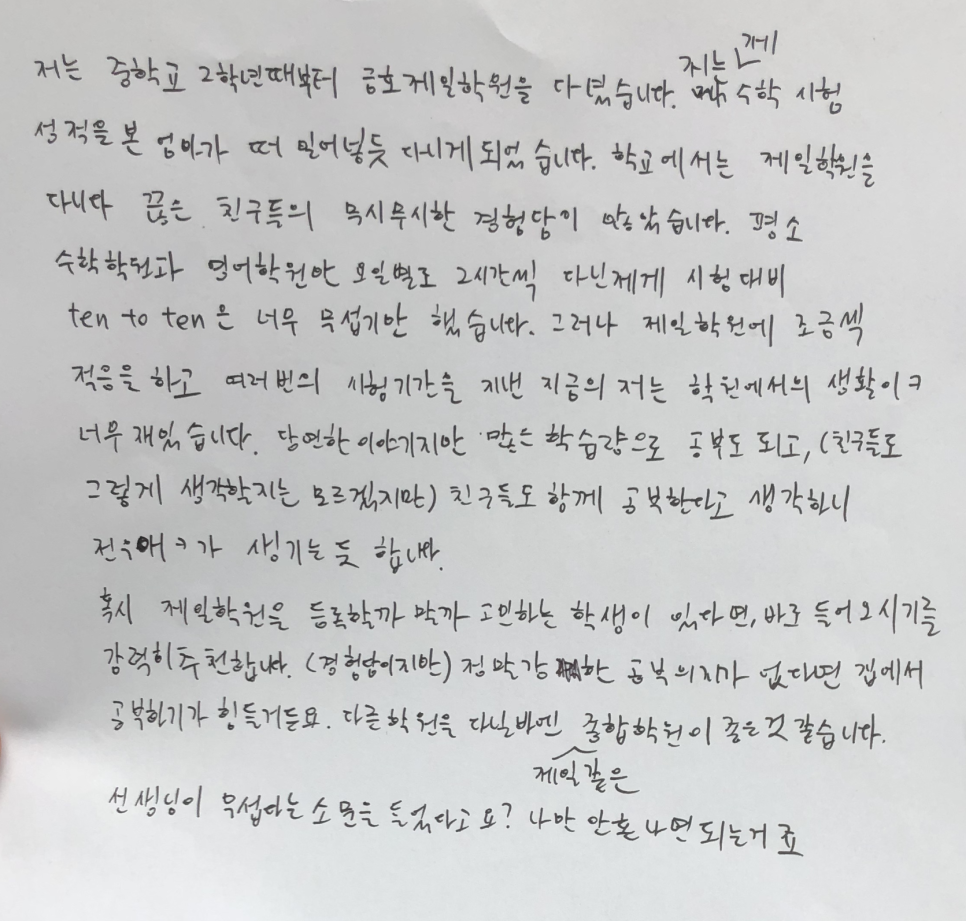 저는 중학교 2학년때부터 금호제일학원을 다녔습니다. 저는 제 수학 시험
성적을 본 엄마가 떠 밀어넣듯 다니게 되었습니다. 학교에서는 제일학원을
다니다 끊은 친구들의 무시무시한 경험담이 많았습니다. 평소
수학학원과 영어학원만 요일별로 2시간씩 다닌제게 시험대비
ten to ten은 너무 무섭기만 했습니다. 그러나 제일학원에 조금씩
적응을 하고 여러번의 시험기간을 지낸 지금의 저는 학원에서의 생활이ㅋ
너무 재밌습니다. 당연한 이야기지만 많은 학습량으로 공부도 되고, (친구들도
그렇게 생각할지는 모르겠지만) 친구들도 함께 공부한다고 생각하니
전우애ㅋ가 생기는 듯 합니다.
혹시 제일학원을 등록할까 말까 고민하는 학생이 있다면, 바로 들어오시기를
강력히 추천합니다. (경험담이지만) 정말 강한 공부의지가 없다면 집에서
공부하기가 힘들거든요. 다른학원을 다닐바엔 종합학원이 좋은것 같습니다.
제일같은
선생님이 무섭다는 소문을 들었다고요? 나만 안혼나면 되는거죠